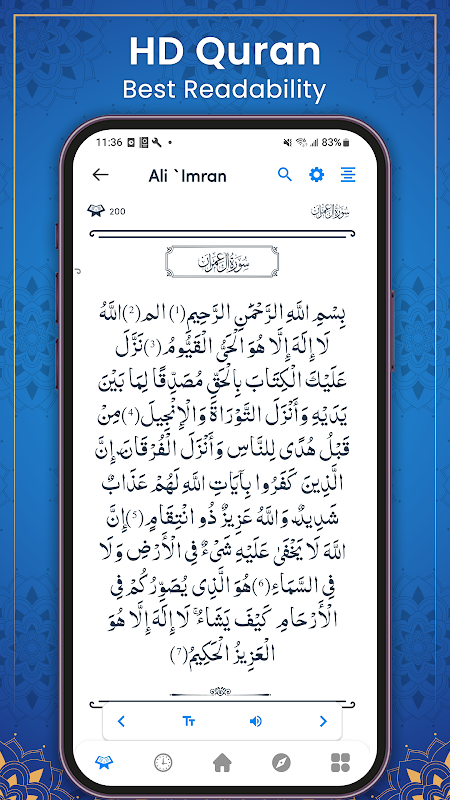 HD Quran
Best Readability
11:36 83%
Ali `Imran
200 سُورَةُ آلِ عِمْرَان
سُورَةُ آلِ عِمْرَان
بِسْمِ اللَّهِ الرَّحْمَٰنِ الرَّحِيمِ(1) الم(2)اللَّهُ
لَا إِلَهَ إِلَّا هُوَ الْحَيُّ الْقَيُّومُ(3)نَزَّلَ
عَلَيْكَ الْكِتَابَ بِالْحَقِّ مُصَدِّقًا لِمَا بَيْنَ
يَدَيْهِ وَأَنْزَلَ التَّوْرَاةَ وَالْإِنْجِيلَ(4)مِنْ
قَبْلُ هُدًى لِلنَّاسِ وَأَنْزَلَ الْفُرْقَانَ إِنَّ
الَّذِينَ كَفَرُوا بِآيَاتِ اللَّهِ لَهُمْ عَذَابٌ
شَدِيدٌ وَاللَّهُ عَزِيزٌ ذُو انْتِقَامٍ(5)إِنَّ
اللَّهَ لَا يَخْفَىٰ عَلَيْهِ شَيْءٌ فِي الْأَرْضِ وَلَا
فِي السَّمَاءِ(6)هُوَ الَّذِي يُصَوِّرُكُمْ فِي
الْأَرْحَامِ كَيْفَ يَشَاءُ ۚ لَا إِلَهَ إِلَّا هُوَ
الْعَزِيزُ الْحَكِيمُ(7)
TT